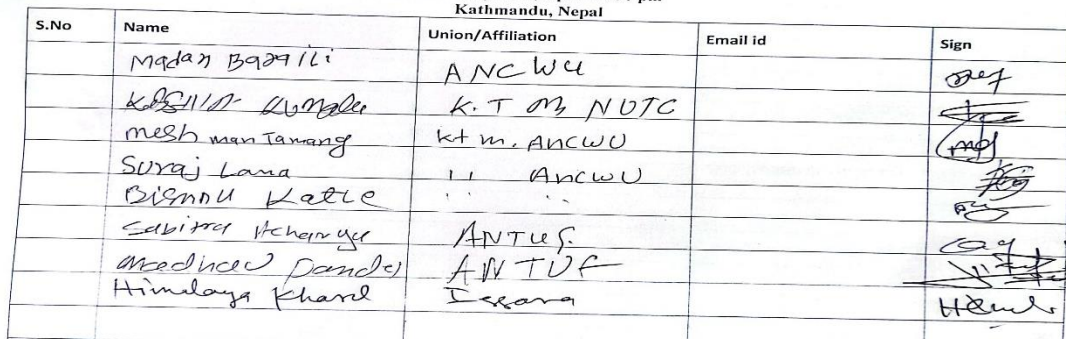 Kathmandu, Nepal
S.No Name Union/Affiliation Email id Sign
Madan ANCWU
K.T M NUTC
mesh man Tamang kt m. ANCWU
Suraj Lama '' ANCWU
Bismnu Katle '' ''
Sabitra Acharya ANTUF
Pandey ANTUF
Himalaya Kharel Issara